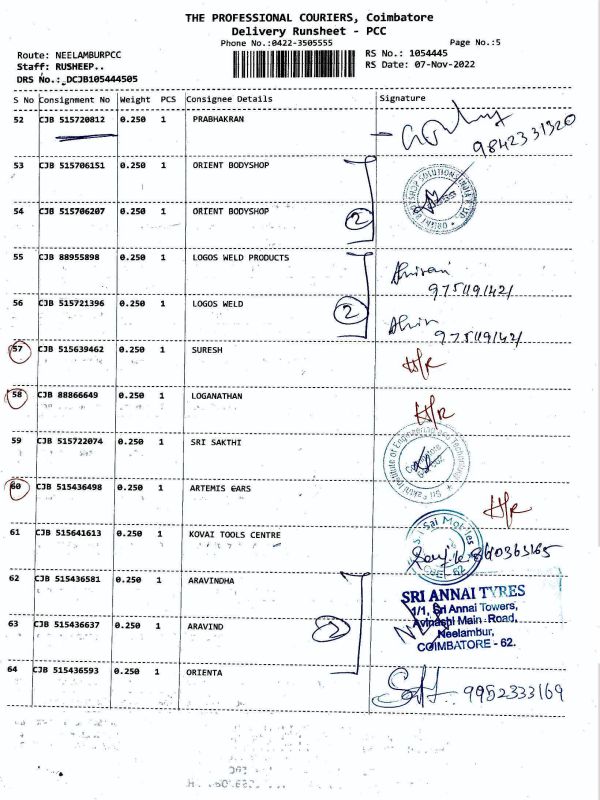 THE PROFESSIONAL COURIERS, Coimbatore
Delivery Runsheet - PCC
Phone No.:0422-3505555
Page No.:5
Route: NEELAMBURPCC
RS No.: 1054445
Staff: RUSHEEP..
RS Date: 07-Nov-2022
DRS No.:_DCJB105444505
S No Consignment No Weight PCS Consignee Details Signature
52 CJB 515720812 0.250 1 PRABHAKRAN
9842331320
53 CJB 515706151 0.250 1 ORIENT BODYSHOP
54 CJB 515706207 0.250 1 ORIENT BODYSHOP
2
55 CJB 88955898 0.250 1 LOGOS WELD PRODUCTS
9751191421
56 CJB 515721396 0.250 1 LOGOS WELD
2
9751191421
57 CJB 515639462 0.250 1 SURESH
H/R
58 CJB 88866649 0.250 1 LOGANATHAN
H/R
59 CJB 515722074 0.250 1 SRI SAKTHI
60 CJB 515436498 0.250 1 ARTEMIS CARS
H/R
61 CJB 515641613 0.250 1 KOVAI TOOLS CENTRE
62 CJB 515436581 0.250 1 ARAVINDHA
SRI ANNAI TYRES
1/1, Sri Annai Towers,
Avinashi Main Road,
Neelambur,
COIMBATORE - 62.
63 CJB 515436637 0.250 1 ARAVIND
2
64 CJB 515436593 0.250 1 ORIENTA
9952333169